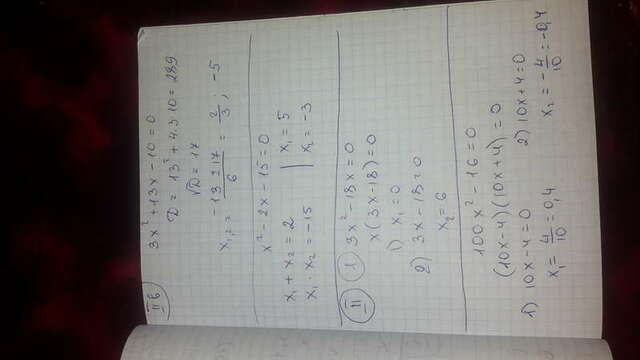 II в
3x² + 13x - 10 = 0
D = 13² + 4·3·10 = 289
√D = 17
x₁,₂ = (-13 ± 17)/6 = 2/3 ; -5
x² - 2x - 15 = 0
x₁ + x₂ = 2 | x₁ = 5
x₁ · x₂ = -15 | x₂ = -3
II 1 3x² - 18x = 0
x(3x - 18) = 0
1) x₁ = 0
2) 3x - 18 = 0
x₂ = 6
100x² - 16 = 0
(10x - 4)(10x + 4) = 0
1) 10x - 4 = 0 2) 10x + 4 = 0
x₁ = 4/10 = 0,4 x₂ = -4/10 = -0,4